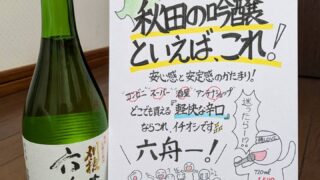 秋田の吟醸
といえば、これ！
安心感と安定感のかたまり！
コンビニ スーパー 酒屋 アンテナショップ
どこでも買える『軽快な辛口』
ならこれ、イチオシです
六舟ー！
迷ったらー!?
720ml
六